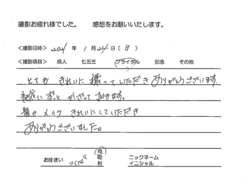 撮影お疲れ様でした。 感想をお願いいたします。
《撮影日時》 2021年 1月24日(日)
《撮影項目》 成人 七五三 ブライダル 記念 その他
とても きれいに 撮って いただき ありがとうございます。
髪やメイク きれいにしていただき
ありがとうございました。
お住まい つくば 市 町 村
ニックネーム
イニシャル